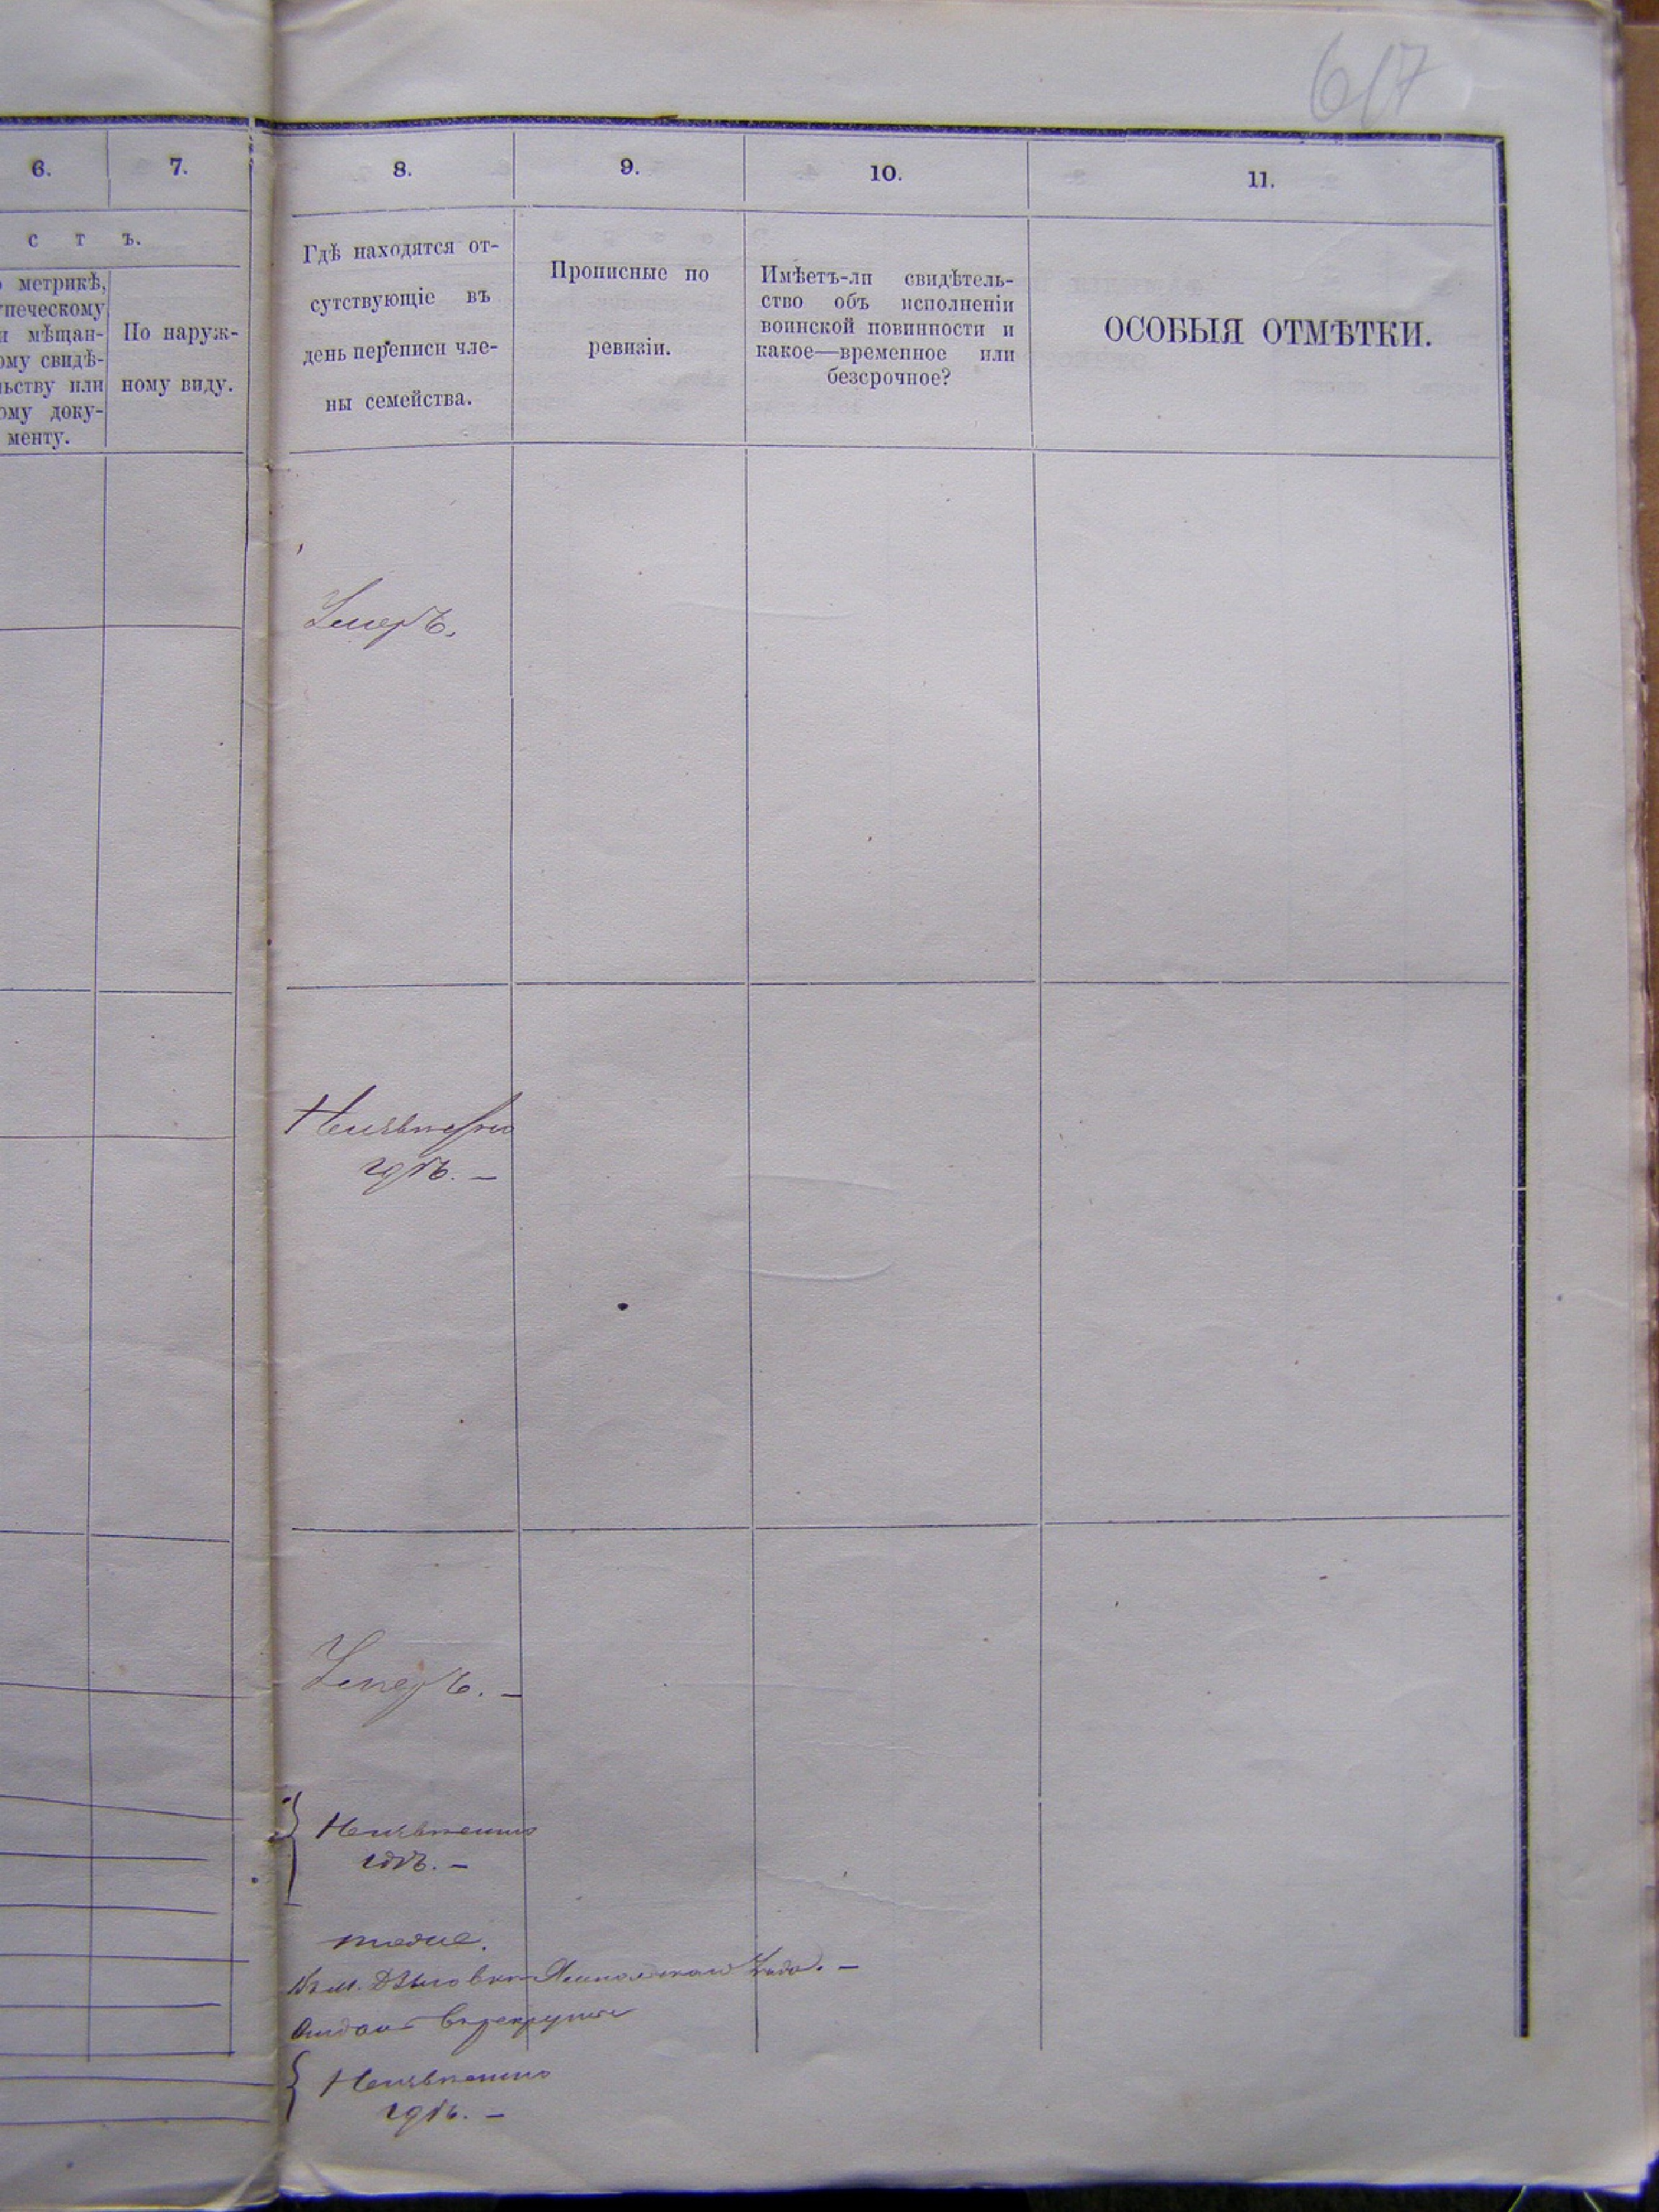 617
6.
7.
8.
9.
10.
11.
с т ъ.
метрикѣ,
печескому
и мѣщан-
ому свидѣ-
льству или
ому доку-
менту.
По наруж-
ному виду.
Гдѣ находятся от-
сутствующіе въ
день переписи чле-
ны семейства.
Прописные по
ревизіи.
Имѣетъ-ли свидѣтель-
ство объ исполненіи
воинской повинности и
какое—временное или
безсрочное?
ОСОБЫЯ ОТМѢТКИ.
Умеръ.
Неизвестно
гдѣ. —
Умеръ. —
Неизвестно
гдѣ. —
тоже.
Въ м.
Отданъ в рекруты
Неизвестно
гдѣ. —